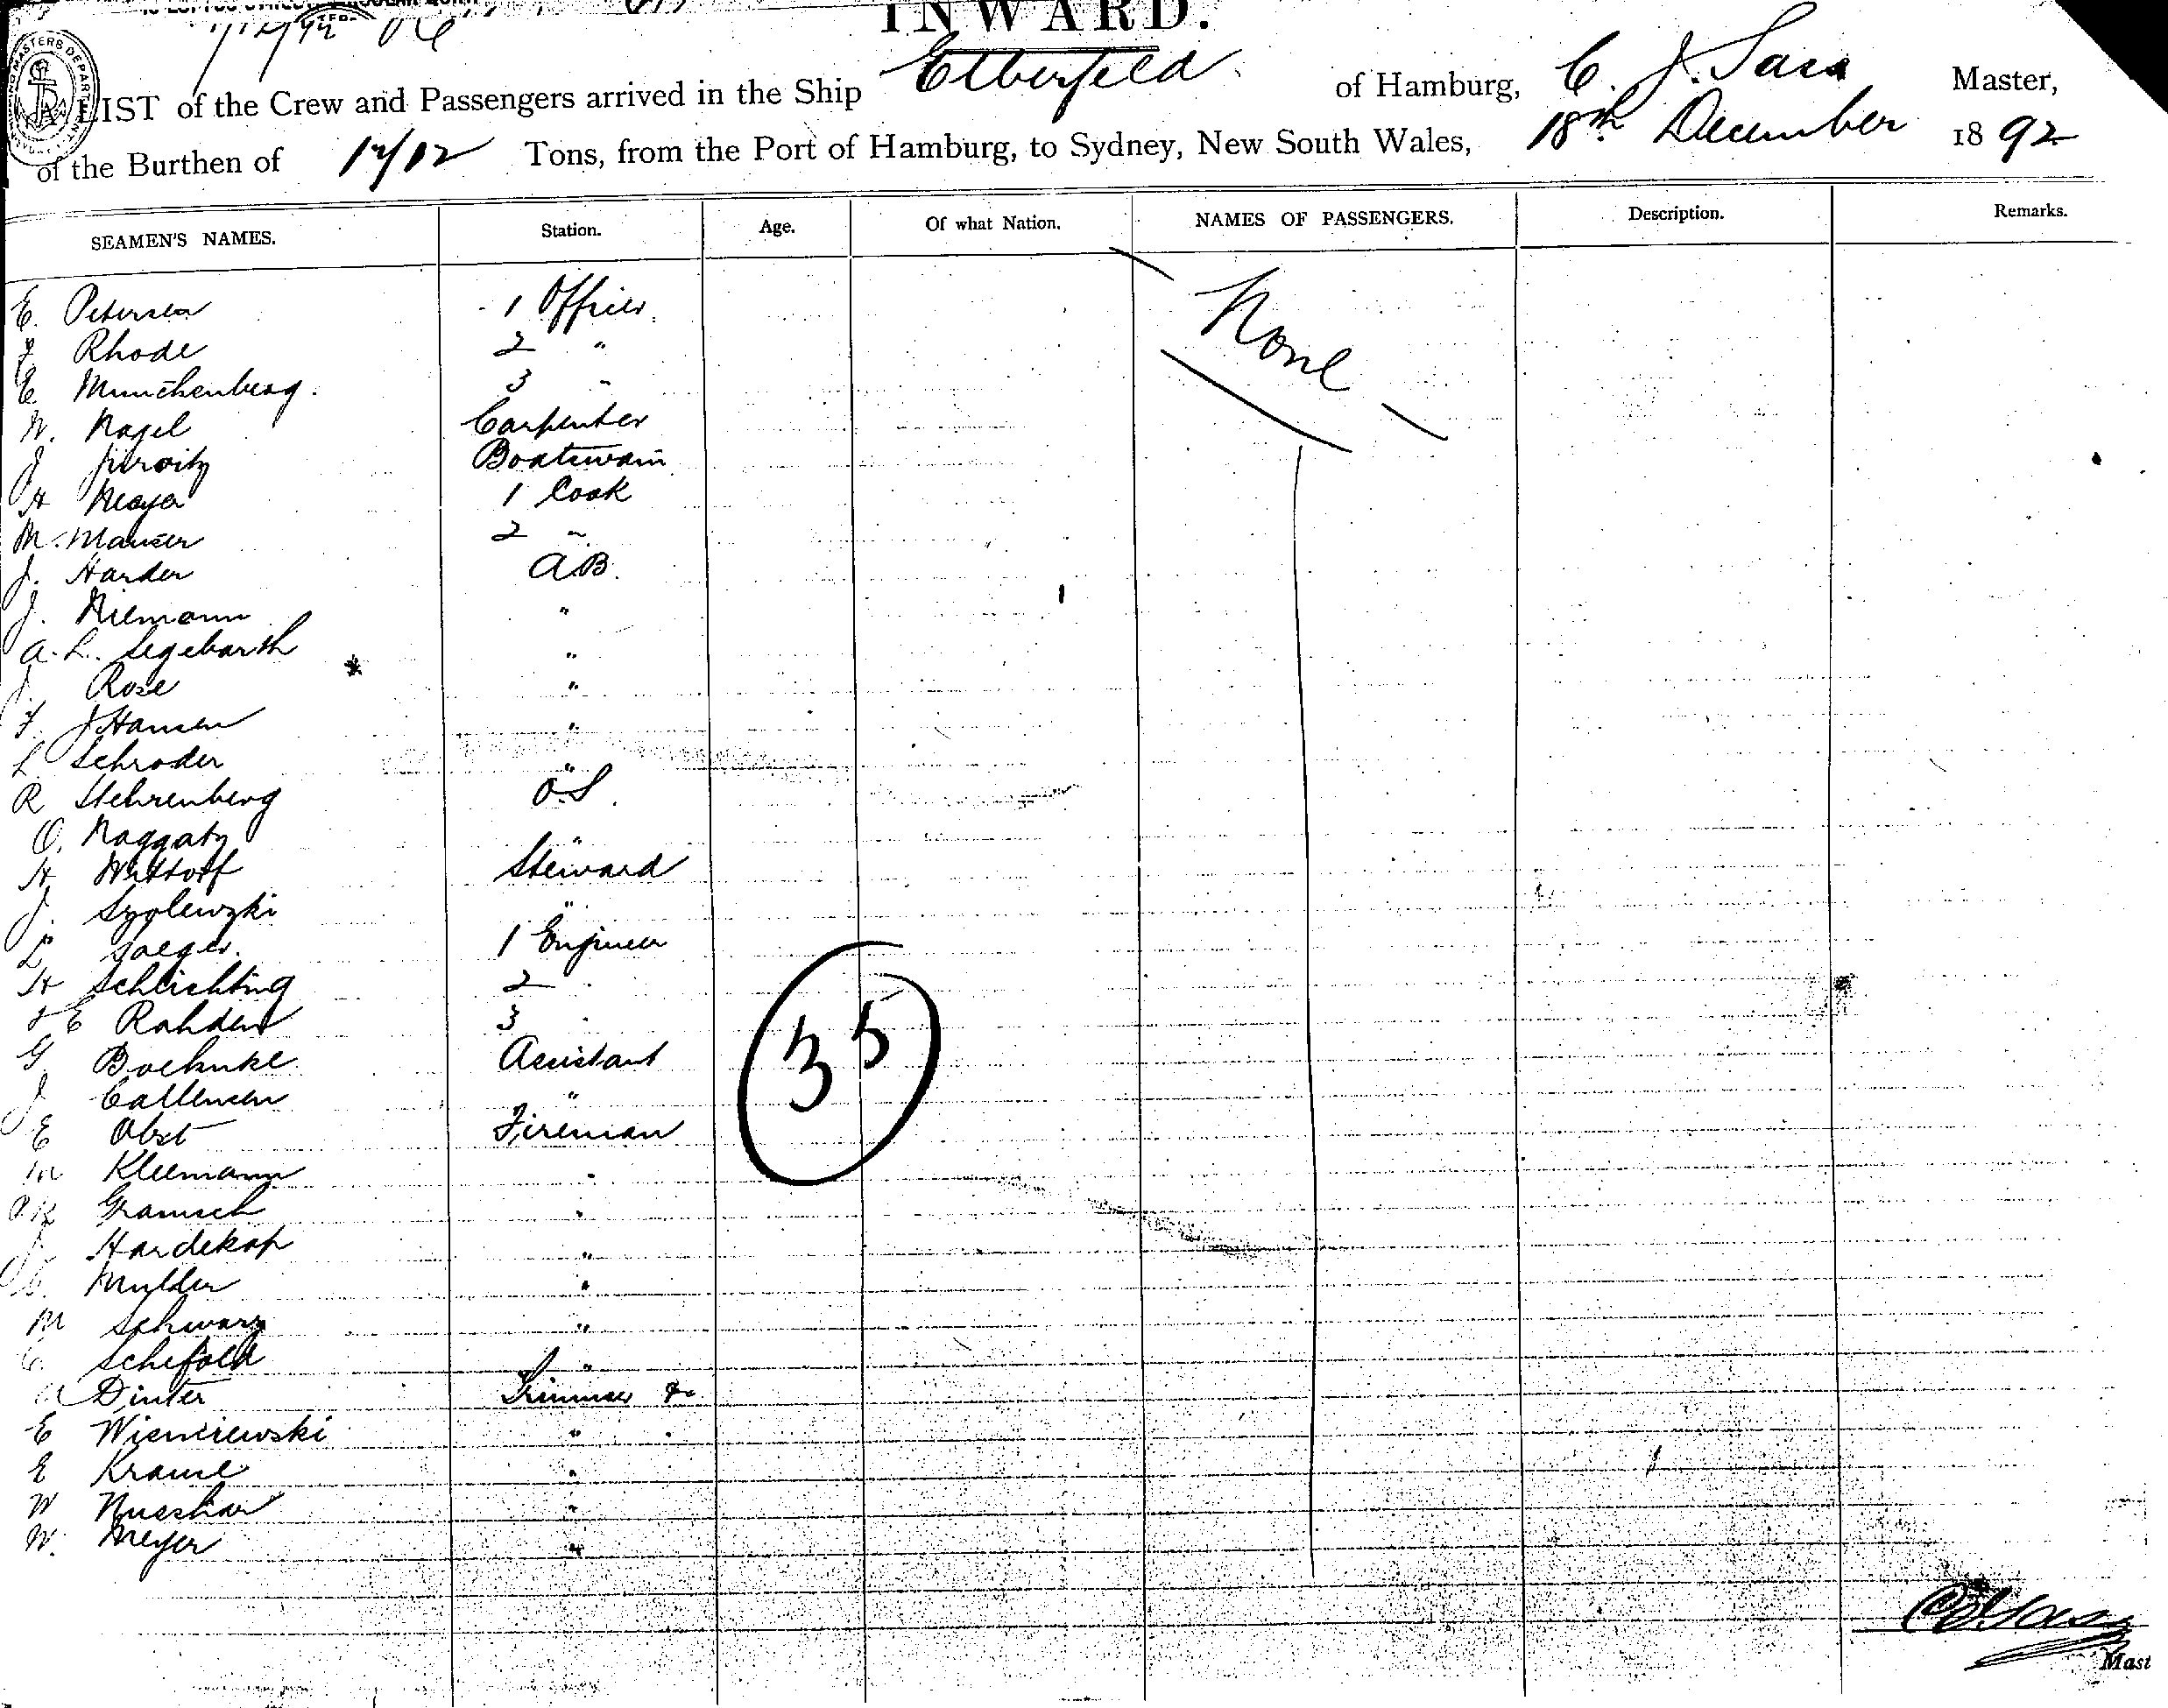 INWARD.
LIST of the Crew and Passengers arrived in the Ship Elberfeld of Hamburg, C. J. Sass Master,
of the Burthen of Tons, from the Port of Hamburg, to Sydney, New South Wales, 18th December 1892
SEAMEN'S NAMES. Station. Age. Of what Nation. NAMES OF PASSENGERS. Description. Remarks.
None
E. Petersen 1 Officer
Rhode 2 "
E. Munchenberg. 3 "
W. Nagel Carpenter
J Boatswain
H Meyer 1 Cook
M. Mauser 2 "
J. Harder A.B.
J. Niemann "
A. L. Segebarth "
J. Rose "
F. J Hansen "
L Schroder "
R Stehrenberg O.S.
O. Raggatz "
H Wittorf Steward
J. Szolewzki "
L Jaeger. 1 Engineer
H Schlichting 2
E Rahden 3
G Boehnke Assistant
J Callensen "
E Obst Fireman
M Kleemann "
Gramsch "
J Hardekop "
Mulder "
M Schwarz "
C. Schefold "
Dinter Trimmer &c
E Wisniewski "
E Krause "
W "
W. Meyer "
35
Mast